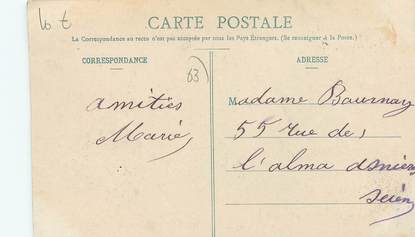 CARTE POSTALE
La Correspondance au recto n'est pas acceptée par tous les Pays Étrangers. (Se renseigner à la Poste.)
CORRESPONDANCE
ADRESSE
63
amitiés
Marie
Madame Bournay
55 rue de
l'alma asnières
seine